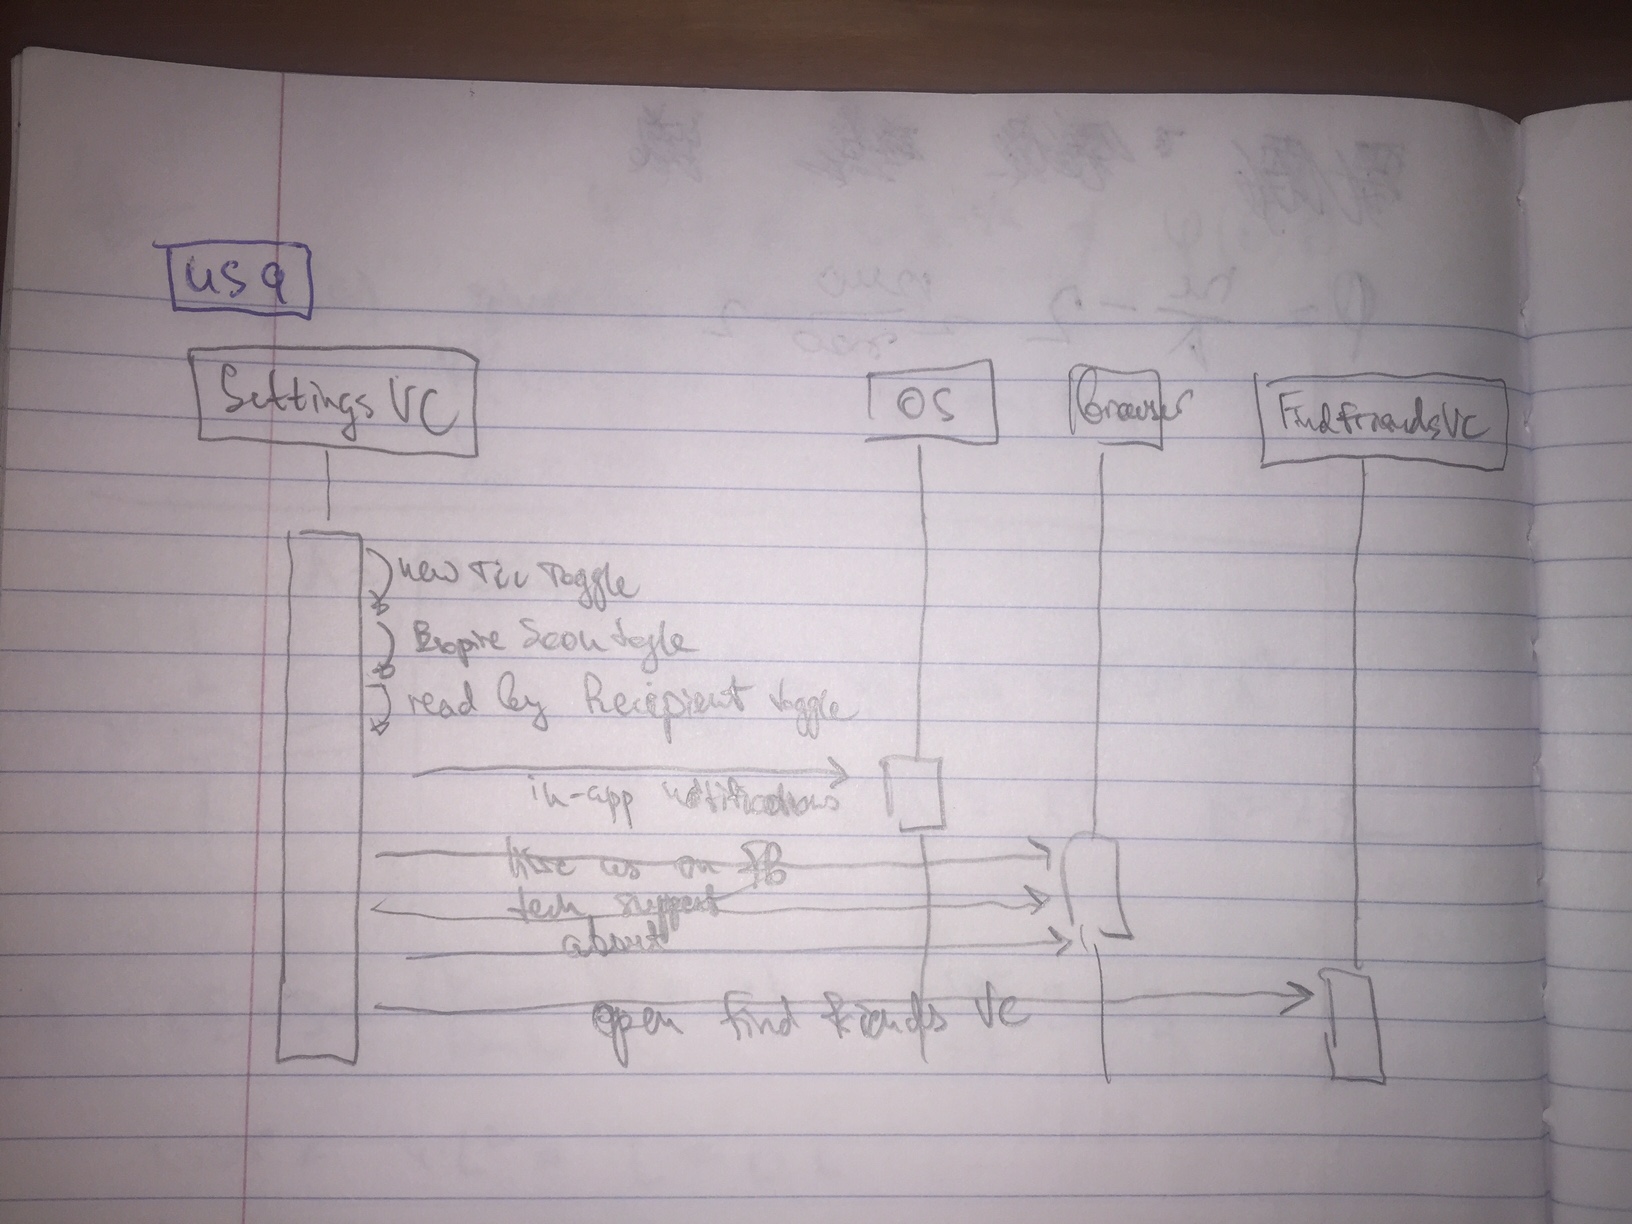 US 9
Settings VC
OS
Browser
FindFriendsVC
new Tic Toggle
Expire Soon togle
read by Recipient toggle
in-app notifications
like us on FB
tech support
about
open find friends VC